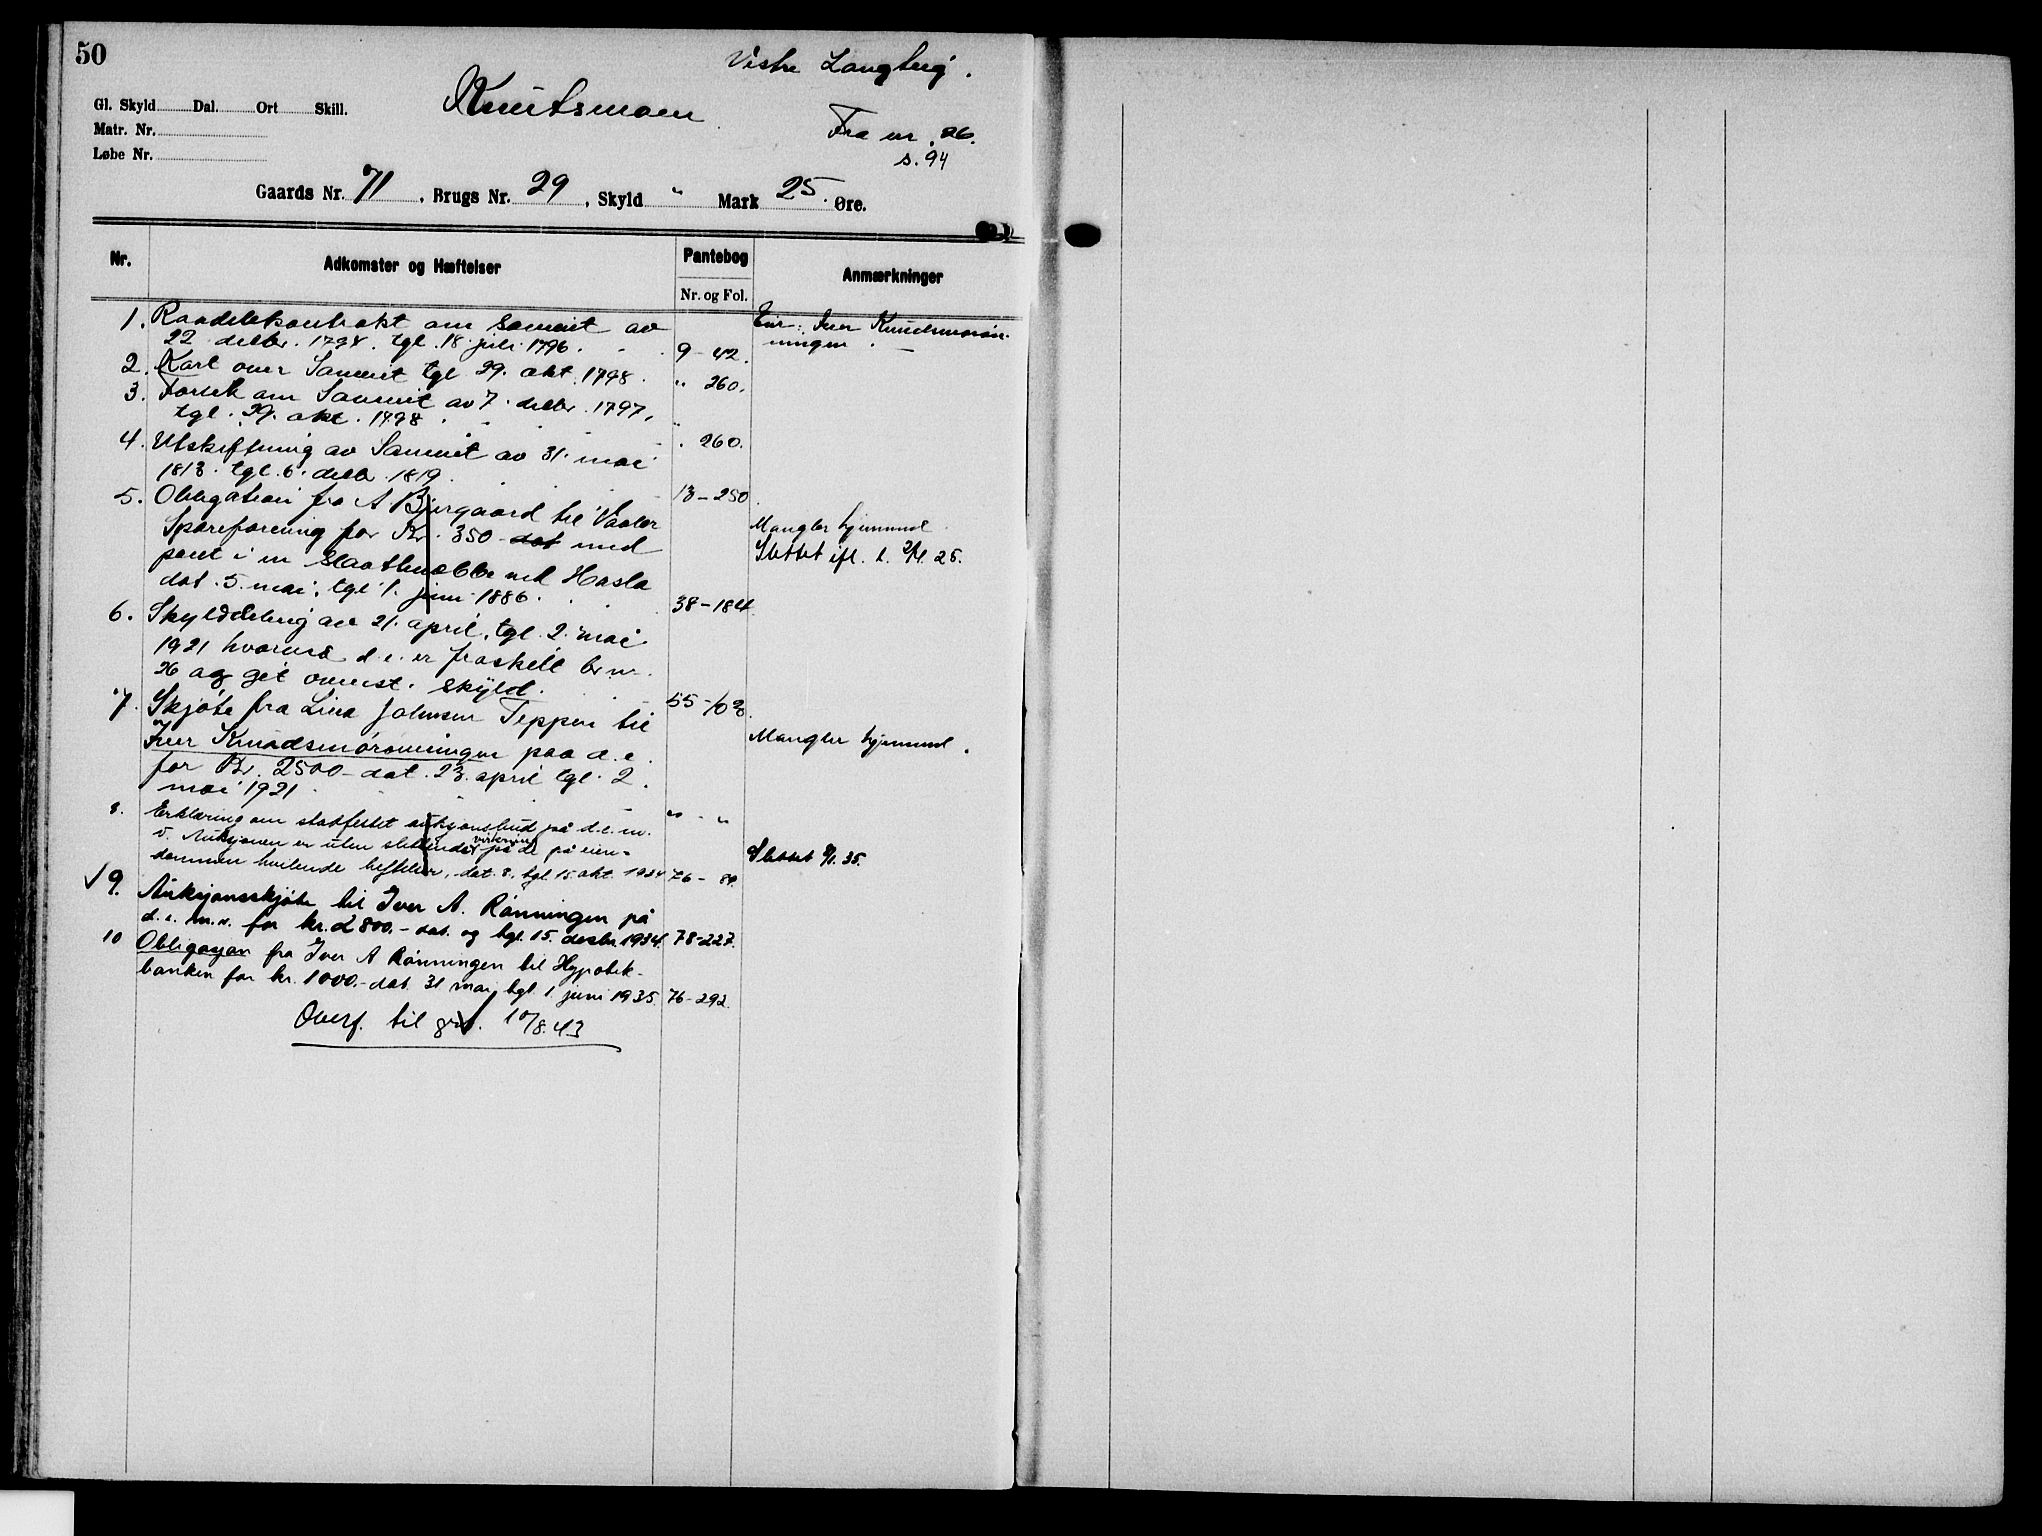 50
Vestre Langberg.
Knutsmoen
Gl. Skyld Dal. Ort Skill.
Matr. Nr.
Fra nr. 26.
Løbe Nr.
s. 94
Gaards Nr. 71, Brugs Nr. 29, Skyld " Mark 25 Øre.
Nr. Adkomster og Hæftelser Pantebog Anmærkninger
Nr. og Fol.
1. Raadelekontrakt om Sameiet av Eier: Iver Knudsmorøn-
22 decbr. 1794. tgl. 18 juli 1796. 9-42. ningen.
2. Kart over Sameiet tgl 29. okt. 1798. " 260.
3. Forlik om Sameiet av 7. decbr. 1797,
tgl. 29. okt. 1798. " 260.
4. Utskiftning av Sameiet av 31. mai
1813. tgl. 6. decbr. 1819. 13-250.
5. Obligation fra A Bjergaard til Vaaler Mangler hjemmel
Spareforening for Kr. 350 dat med Slettet ifl. t. 2/4. 25.
pant i en Slaatteløkke ved Hasla
dat. 5. mai, tgl 1. juni 1886. 38-184.
6. Skylddeling av 21. april, tgl. 2. mai
1921 hvorved d.e. er fraskilt br nr
26 og git ovenst. skyld. 55-103.
7. Skjøte fra Lina Johnsen Teppen til Mangler hjemmel.
Iver Knudsmorønningen paa d.e.
for Kr. 2500- dat. 23. april tgl. 2.
mai 1921. " - "
8. Erklæring om stadfestet auksjonsbud på d.e. m.
v. Auksjonen er uten slettende virkning på de på eien- Slettet 8/1. 35.
dommen hvilende heftelser, dat. 8, tgl. 15. okt. 1934 76- 89.
✓ 9. Auksjonsskjøte til Iver A. Rønningen på
d.e. m.v. for kr. 2800.- dat. og tgl. 15. desbr. 1934. 78-227.
10 Obligasjon fra Iver A Rønningen til Hypotek-
banken for kr. 1000.- dat. 31 mai, tgl. 1 juni 1935. 76-292.
Overf. til 10/8.43